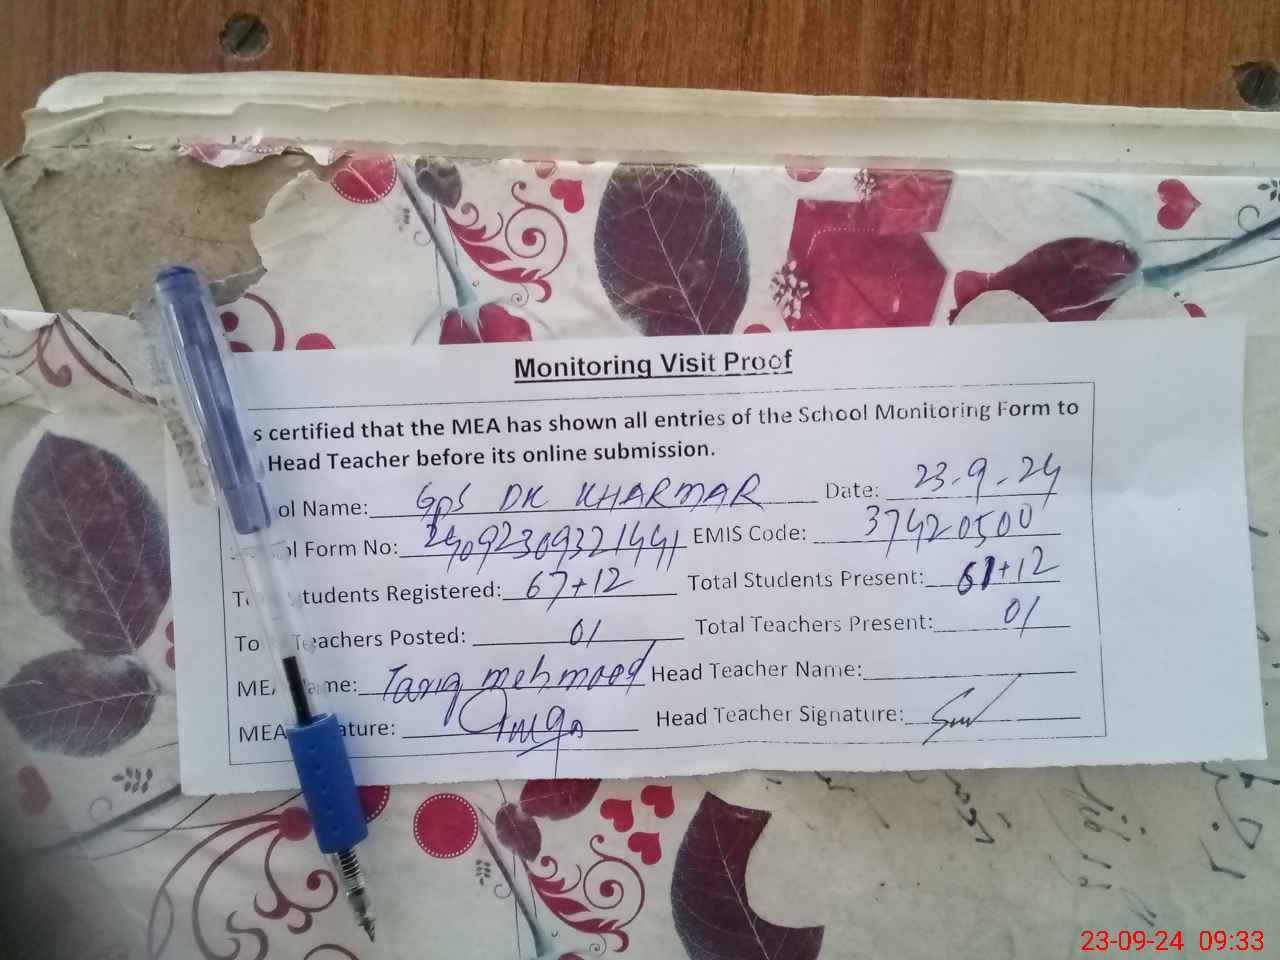 Monitoring Visit Proof
s certified that the MEA has shown all entries of the School Monitoring Form to
Head Teacher before its online submission.
ol Name: GPS DK KHARMAR Date: 23-9-24
l Form No: 24092309321441 EMIS Code: 37420500
T tudents Registered: 67+12 Total Students Present: 61+12
To Teachers Posted: 01 Total Teachers Present: 01
MEA ame: Tariq mehmood Head Teacher Name:
MEA ature: Head Teacher Signature:
23-09-24 09:33